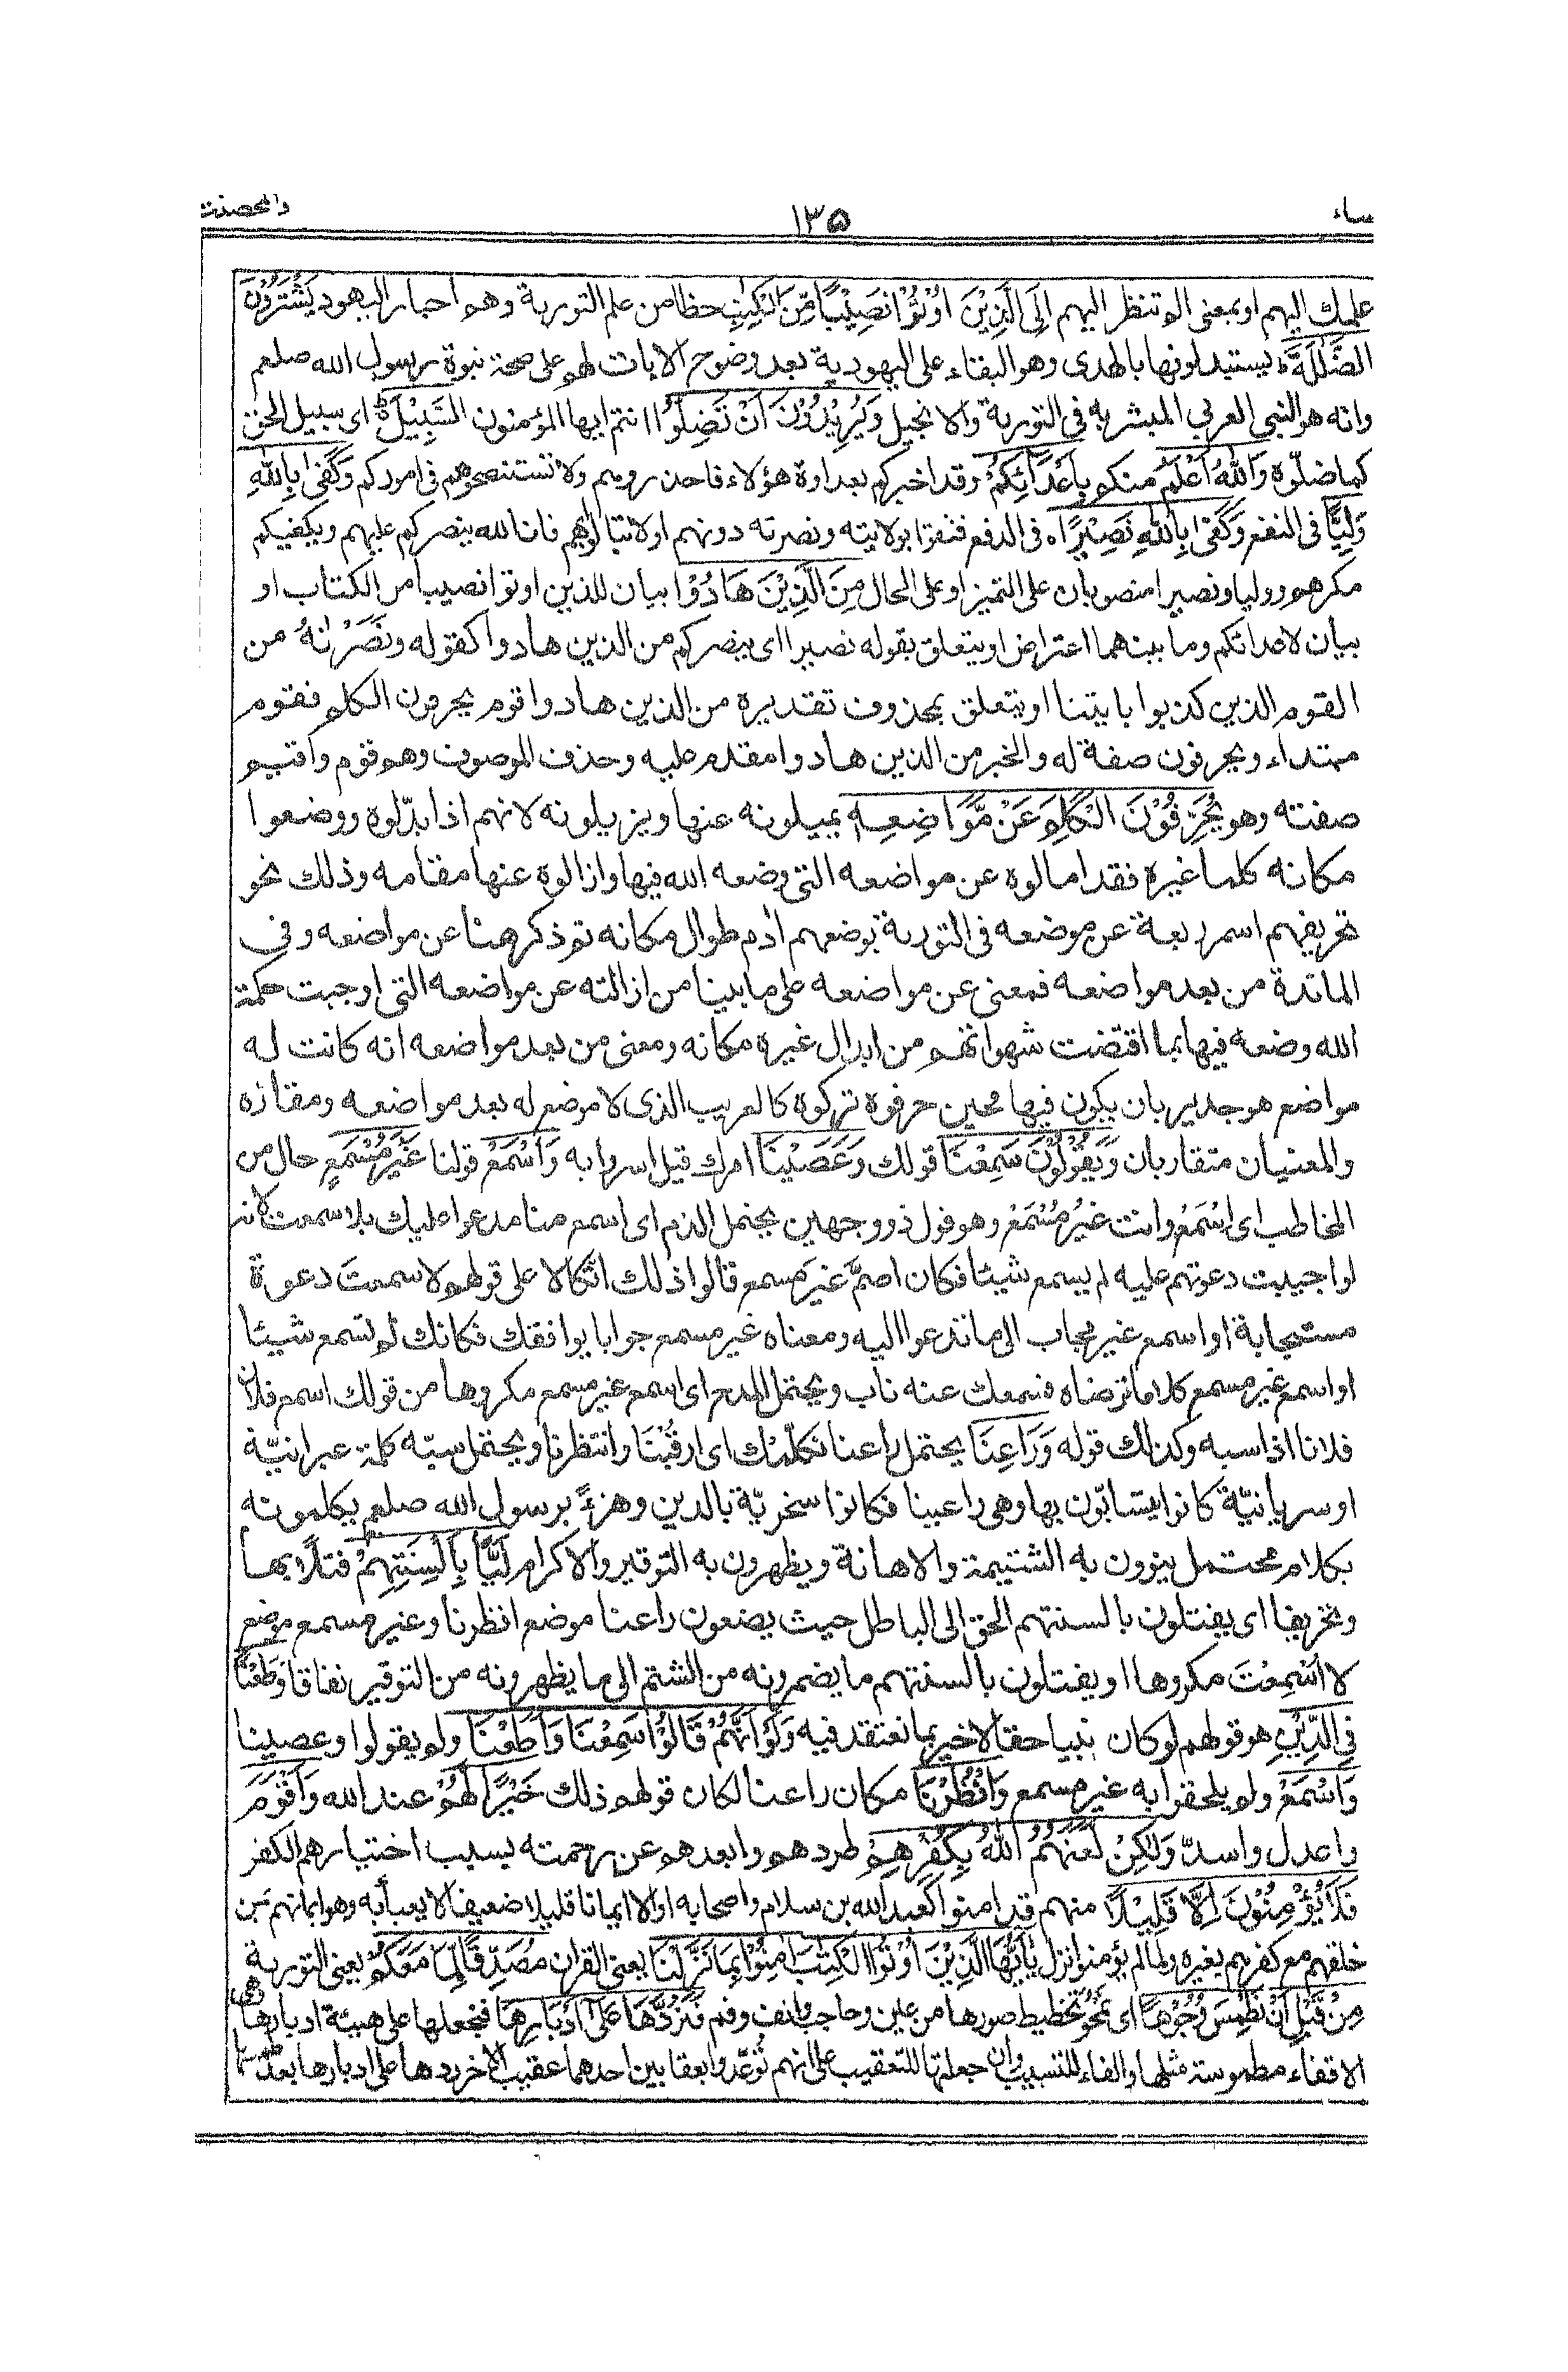 ساء ١٣٥ والمحصنت
علمك اليهم او بمعنى الم تنظر اليهم اِلَى الَّذِيْنَ اُوْتُوْا نَصِيْبًا مِّنَ الْكِتٰبِ حظا من علم التورية وهم احبار اليهود يَشْتَرُوْنَ
الضَّلٰلَةَ يستبدلونها بالهدى وهو البقاء على اليهودية بعد وضوح الايات لهم على صحة نبوة رسول الله صلعم
وانه هو النبي العربي المبشر به فى التورية والانجيل وَيُرِيْدُوْنَ اَنْ تَضِلُّوا انتم ايها المؤمنون السَّبِيْلَ اى سبيل الحق
كما ضلّوه وَاللّٰهُ اَعْلَمُ منكم بِاَعْدَآئِكُمْ وقد اخبركم بعداوة هؤلاء فاحذروهم ولا تستنصحوهم فى اموركم وَكَفٰى بِاللّٰهِ
وَلِيًّا فى النفع وَكَفٰى بِاللّٰهِ نَصِيْرًا فى الدفع فثقوا بولايته ونصرته دونهم اولا تبالوا بهم فان الله ينصركم عليهم ويكفيكم
مكرهم ووليا ونصيرا منصوبان على التميز او على الحال مِنَ الَّذِيْنَ هَادُوْا بيان للذين اوتوا نصيبا من الكتاب او
بيان لاعدائكم وما بينهما اعتراض او يتعلق بقوله نصيرا اى ينصركم من الذين هادوا كقوله ونَصَرْنٰهُ من
القوم الذين كذبوا بايتنا او يتعلق بمحذوف تقديره من الذين هادوا قوم يحرفون الكلم فقوم
مبتداء ويحرفون صفة له والخبر من الذين هادوا مقدم عليه وحذف الموصوف وهو قوم واقيم
صفته وهو يُحَرِّفُوْنَ الْكَلِمَ عَنْ مَّوَاضِعِهٖ يميلونه عنها ويزيلونه لانهم اذا بدّلوه ووضعوا
مكانه كلما غيره فقد امالوه عن مواضعه التى وضعه الله فيها وازالوه عنها مقامه وذلك نحو
تحريفهم اسمر ربعة عن موضعه فى التورية بوضعهم ادم طوال مكانه ثم ذكر هنا عن مواضعه وفى
المائدة من بعد مواضعه فمعنى عن مواضعه على ما بينا من ازالته عن مواضعه التى اوجبت حكمة
الله وضعه فيها بما اقتضت شهواتهم من ابدال غيره مكانه ومعنى من بعد مواضعه انه كانت له
مواضع هو جدير بان يكون فيها فحين حرفوه تركوه كالغريب الذى لا موضع له بعد مواضعه ومقاره
والمعنيان متقاربان وَيَقُوْلُوْنَ سَمِعْنَا قولك وَعَصَيْنَا امرك قيل اسروا به وَاسْمَعْ قولنا غَيْرَ مُسْمَعٍ حال من
المخاطب اى اسْمَعْ وانت غَيْرُ مُسْمَعٍ وهو قول ذو وجهين يحتمل الذم اى اسمع منا مدعوا عليك بلا سمعت لانه
لو اجيبت دعوتهم عليه لم يسمع شيئا فكان اصمّ غير مسمع قالوا ذلك اتكالا على قولهم لا سمعتَ دعوةً
مستجابة او اسمع غير مجاب الى ما تدعوا اليه ومعناه غير مسمع جوابا يوافقك فكانك لم تسمع شيئا
او اسمع غير مسمع كلاما ترضاه فسمعك عنه ناب ويحتمل المدح اى اسمع غير مسمع مكروها من قولك اسمع فلان
فلانا اذا سبه وكذلك قوله وَرَاعِنَا يحتمل راعنا نكلّمْك اى ارقُبْنا وانتظرنا ويحتمل سبّه كلمة عبرانيّة
او سريانيّة كانوا يتسابّون بها وهى راعينا فكانوا سخريّة بالدين وهزءً برسول الله صلعم يكلمونه
بكلام محتمل ينوون به الشتيمة والاهانة ويظهرون به التوقير والاكرام لَيًّا بِاَلْسِنَتِهِمْ فتلًا بها
وتحريفا اى يفتلون بالسنتهم الحق الى الباطل حيث يضعون راعنا موضع انظرنا وغير مسمع موضع
لا اُسْمِعْتَ مكروها او يفتلون بالسنتهم ما يضمرونه من الشتم الى ما يظهرونه من التوقير نفاقا وَطَعْنًا
فِى الدِّيْنِ هو قولهم لو كان نبيا حقا لاخبر بما نعتقد فيه وَلَوْ اَنَّهُمْ قَالُوْا سَمِعْنَا وَاَطَعْنَا ولم يقولوا وعصينا
وَاسْمَعْ ولم يلحقوا به غير مسمع وَانْظُرْنَا مكان راعنا لكان قولهم ذلك خَيْرًا لَّهُمْ عند الله وَاَقْوَمَ
واعدل واسدّ وَلٰكِنْ لَّعَنَهُمُ اللّٰهُ بِكُفْرِهِمْ طردهم وابعدهم عن رحمته بسبب اختيارهم الكفر
فَلَا يُؤْمِنُوْنَ اِلَّا قَلِيْلًا منهم قد امنوا كعبد الله بن سلام واصحابه او الا ايمانا قليلا ضعيفا لا يعبأ به وهو ايمانهم بمن
خلقهم مع كفرهم بغيره ولما لم يؤمنوا نزل يٰاَيُّهَا الَّذِيْنَ اُوْتُوا الْكِتٰبَ اٰمِنُوْا بِمَا نَزَّلْنَا يعنى القران مُصَدِّقًا لِّمَا مَعَكُمْ يعنى التورية
مِنْ قَبْلِ اَنْ نَّطْمِسَ وُجُوْهًا اى نمحُوَ تخطيط صورها من عين وحاجب وانف وفم فَنَرُدَّهَا عَلٰٓى اَدْبَارِهَا فنجعلها على هيئة ادبارها وهى
الاقفاء مطموسة مثلها والفاء للتسبيب وان جعلتها للتعقيب على انهم تُوُعِّدوا بعقابين احدهما عقيب الاخر ردها على ادبارها بعد